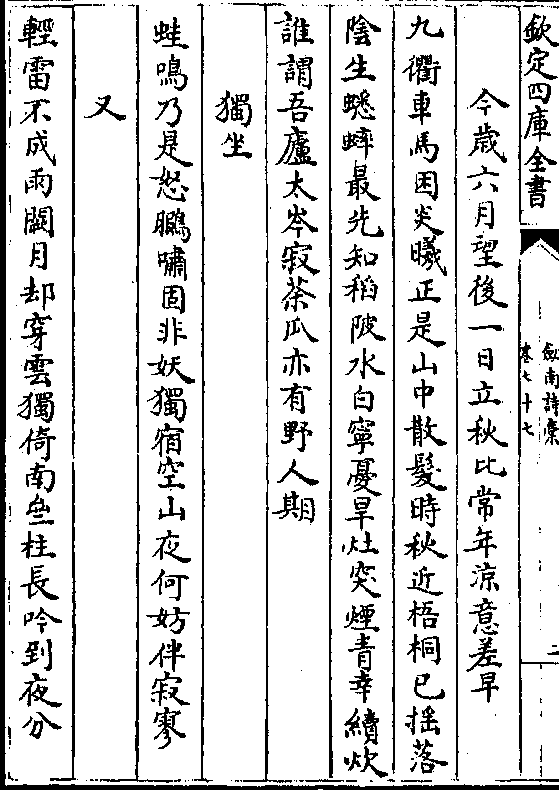 欽定四庫全書
劔南詩藁
卷七十七
二
今歳六月望後一日立秋比常年涼意差早
九衢車馬困炎曦正是山中散髮時秋近梧桐已揺落
陰生蟋蟀最先知稻陂水白寧憂旱灶突煙青幸續炊
誰謂吾廬太岑寂茶瓜亦有野人期
獨坐
蛙鳴乃是怒鵩嘯固非妖獨宿空山夜何妨伴寂寥
又
輕雷不成雨闕月却穿雲獨倚南堂柱長吟到夜分